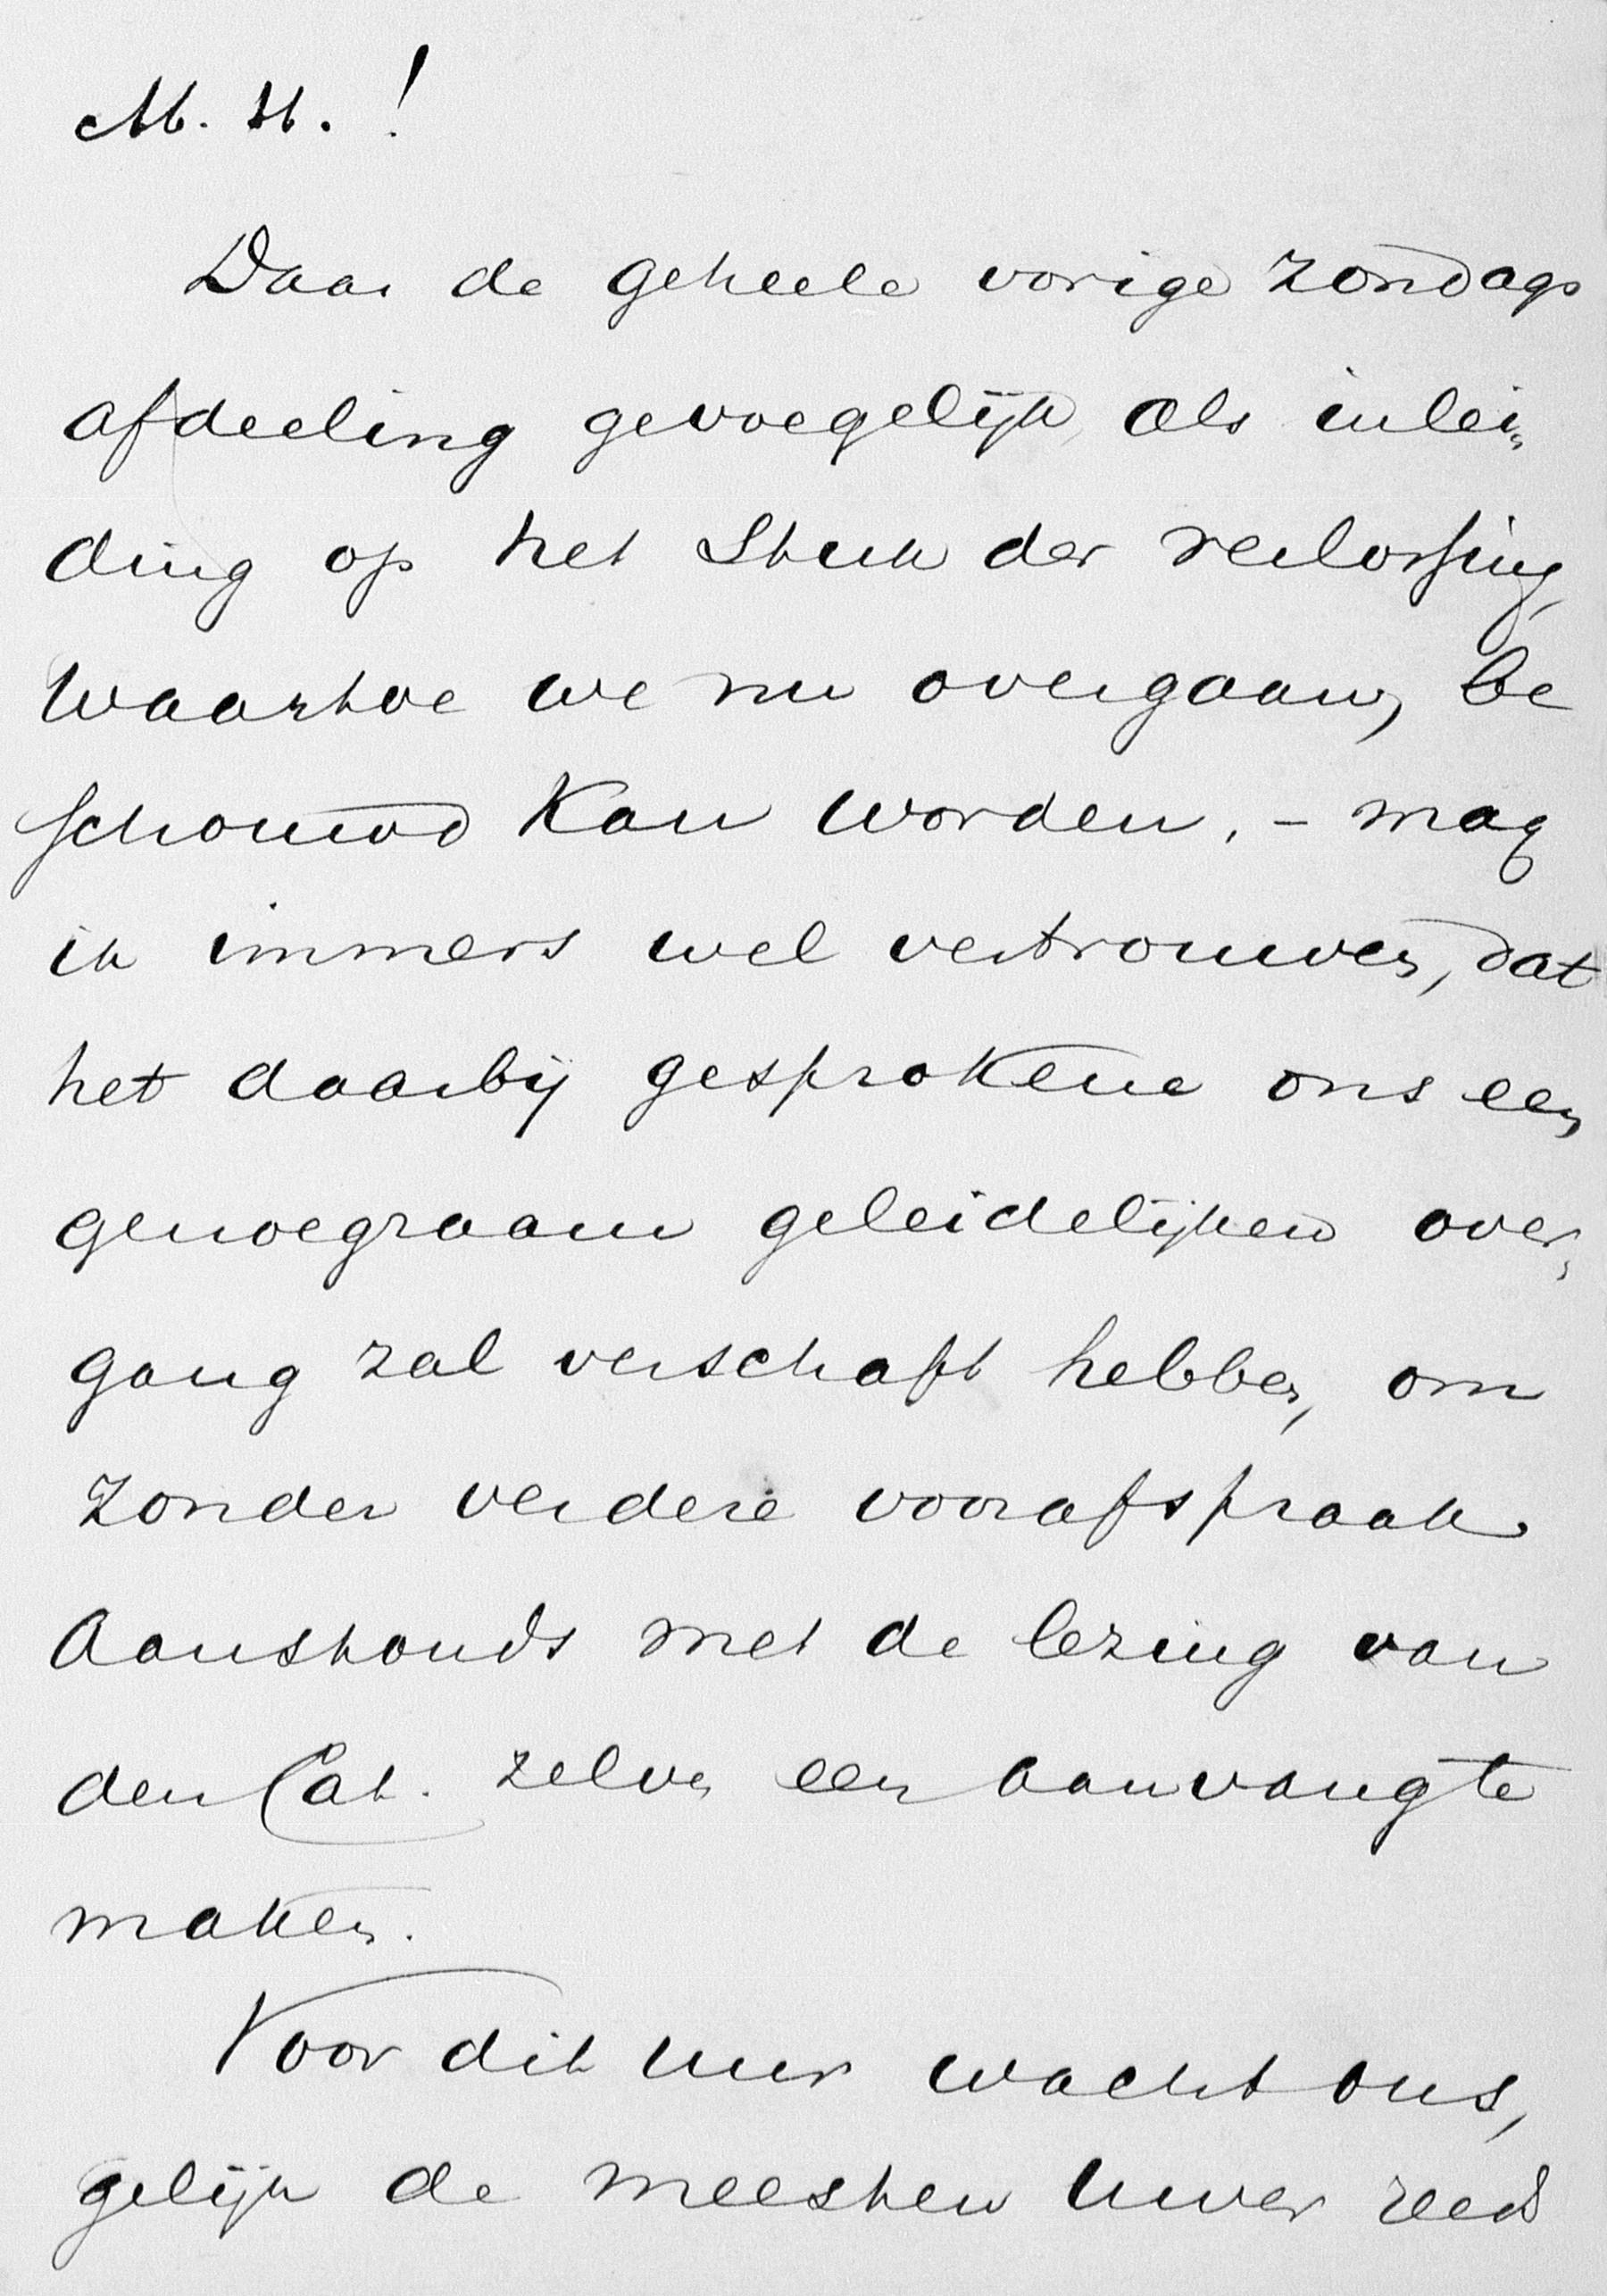 M. H.!
Daar de geheele vorige Zondags
afdeeling gevoegelijk als inlei„
ding op het Stuk der verlossing,
waartoe we nu overgaan, be
schouwd kan worden, - mag
ik immers wel vertrouwen, dat
het daarbij gesprokene ons een
genoegzaam geleidelijken over„
gang zal verschaft hebben, om
zonder verdere voorafspraak
aanstonds met de lezing van
den Cat. zelven een aanvang te
maken.
Voor dit uur wacht ons,
gelijk de meesten Uwer reeds